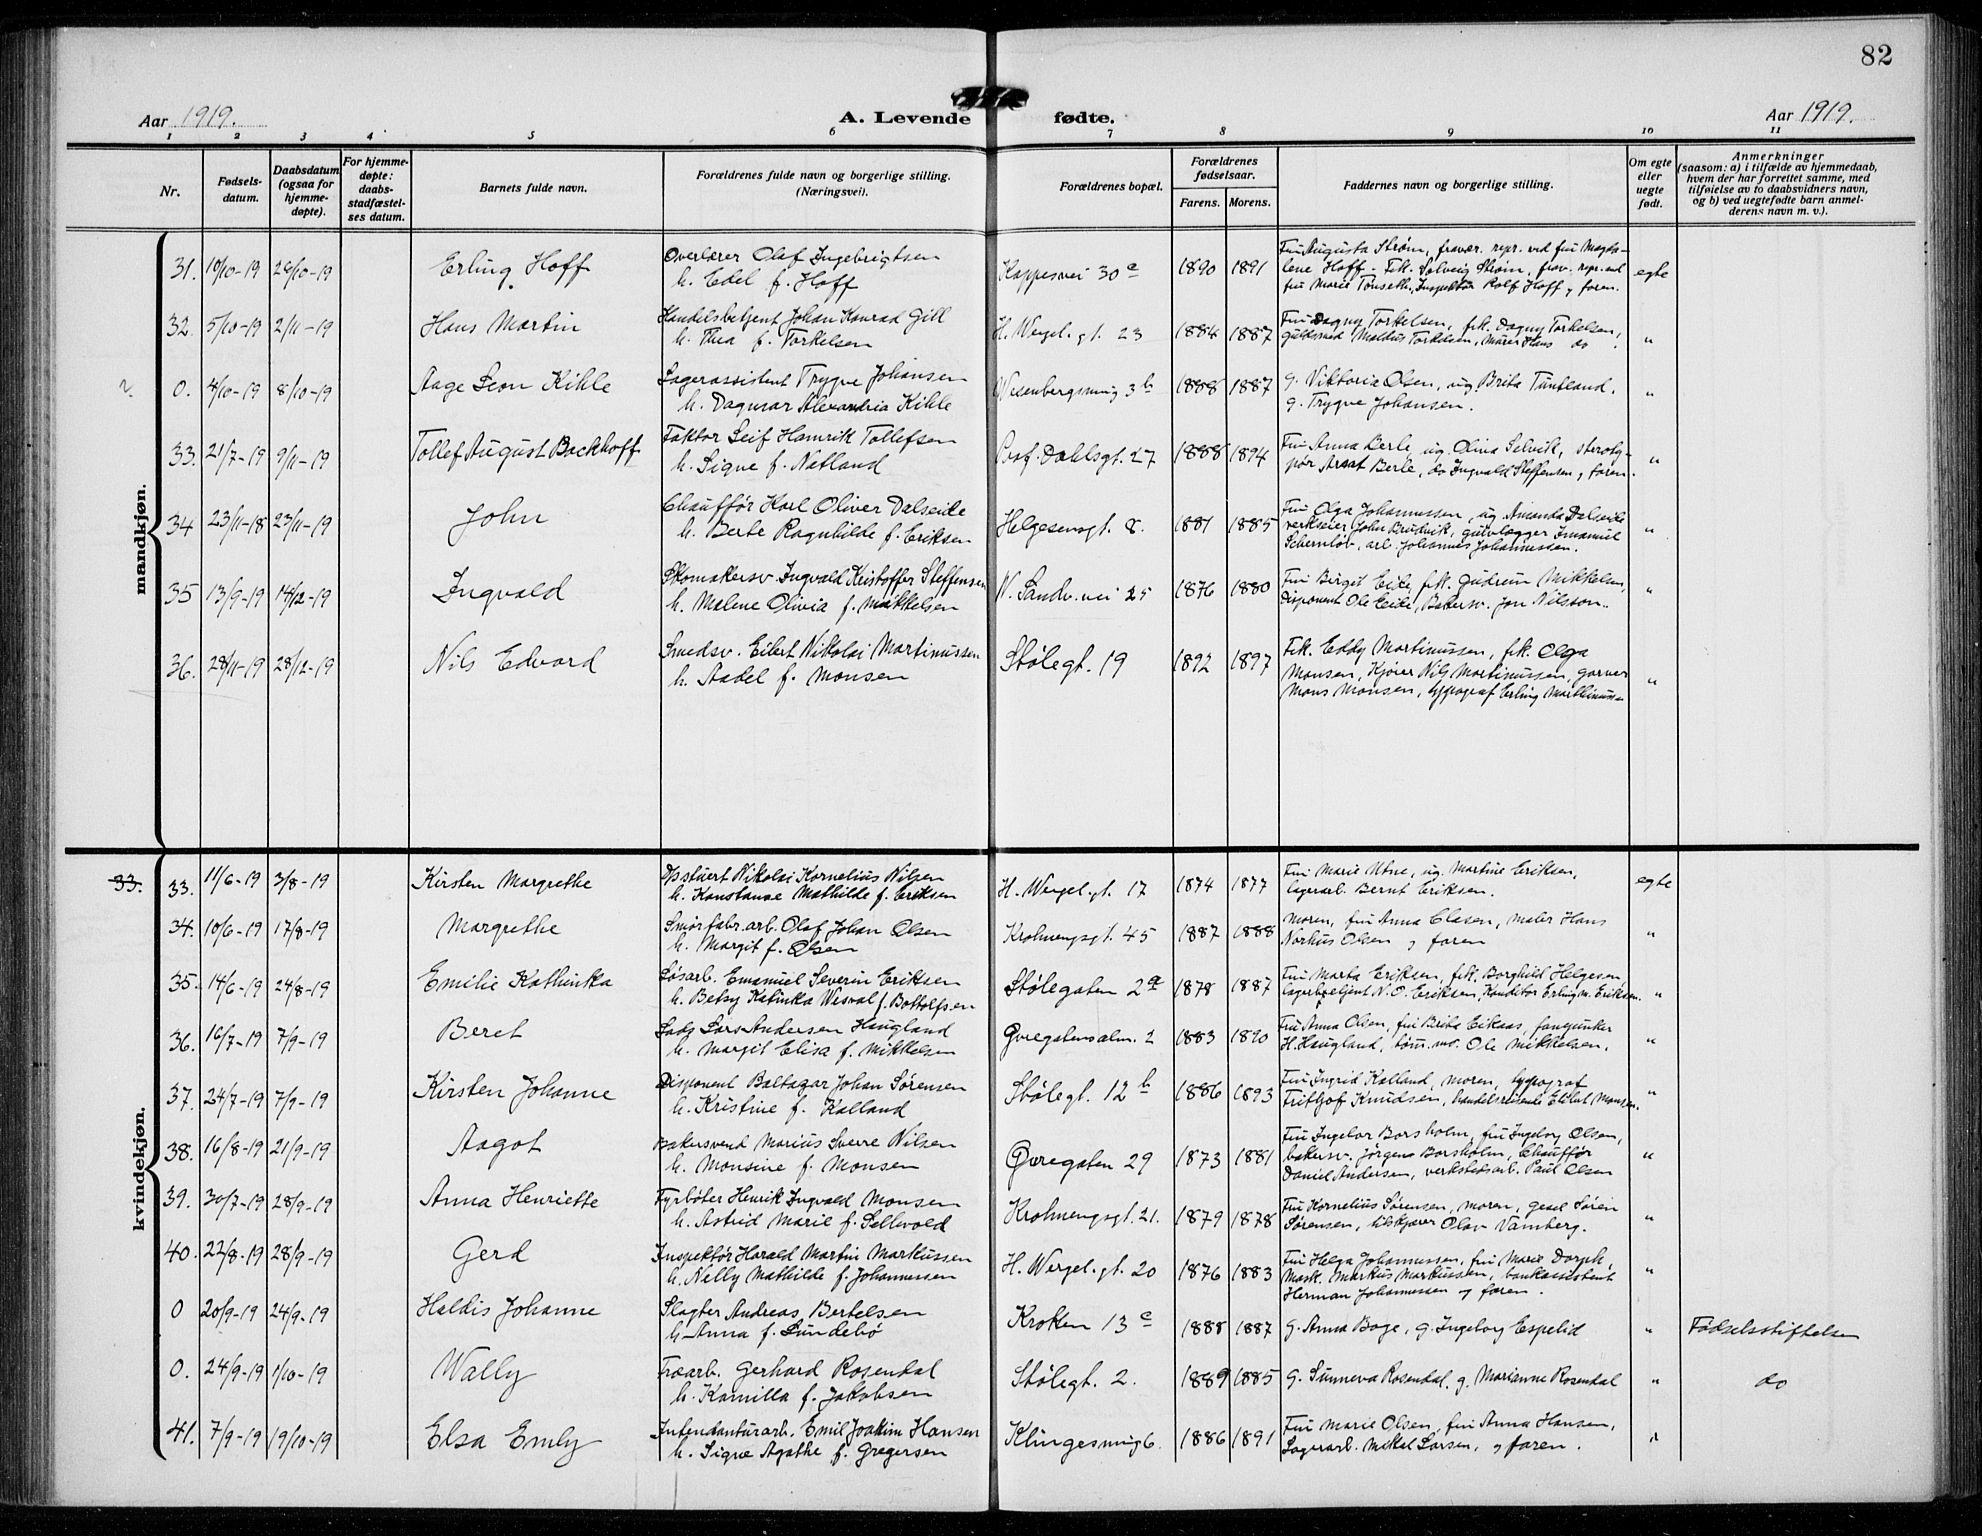 82
Aar 1919.
A. Levende fødte.
Aar 1919.
1 2 3 4 5 6 7 8 9 10 11
Nr.
Fødsels-
datum.
Daabsdatum
(ogsaa for
hjemme-
døpte).
For hjemme-
døpte:
daabs-
stadfæstel-
ses datum.
Barnets fulde navn.
Forældrenes fulde navn og borgerlige stilling.
(Næringsvei).
Forældrenes bopæl.
Forældrenes
fødselsaar.
Farens. Morens.
Faddernes navn og borgerlige stilling.
Om egte
eller
uegte
født.
Anmerkninger
(saasom: a) i tilfælde av hjemmedaab,
hvem der har forrettet samme, med
tilføielse av to daabsvidners navn,
og b) ved uegtefødte barn anmel-
derens navn m. v.).
mandkjøn.
31. 10/10-19 26/10-19 Erling Hoff
Overlærer Olaf Ingebrigtsen
h. Edel f. Hoff
Kappesvei 30c 1890 1891
Fru Augusta Strøm, fravær. repr. ved fru Magda-
lene Hoff. Frk. Solveig Strøm, frav. repr. ved
fru Marie Tønseth, Inspektør Rolf Hoff, faren.
egte
32. 5/10-19 2/11-19 Hans Martin
Handelsbetjent Johan Konrad Gill
h. Thea f. Torkelsen
H. Wergel. gt. 23 1884 1887
Fru Dagny Torkelsen, frk. Dagny Torkelsen,
guldsmed Maldus Torkelsen, Hans do
"
0. 4/10-19 8/10-19 Aage Leon Kihle
Lagerassistent Trygve Johansen
h. Dagmar Alexandria Kihle
Wesenbergsmug 3b 1888 1887
g. Viktoria Olsen, ug Brita Tuntland.
g. Trygve Johansen.
"
33. 21/7-19 9/11-19 Tollef August Backhoff
Faktor Leif Hamrik Tollefsen
h. Signe f. Natland
Prof. Dahlsgt. 27 1888 1894
Fru Anna Berle, ug Olina Selvik, steroty-
pør Berle, do Ingvald Steffensen, faren.
"
34 23/11-18 23/11-19 John
Chauffør Karl Oliver Dalseide
h. Berte Ragnhilde f. Eriksen
Helgesensgt. 8. 1881 1885
Fru Olga Johannessen, ug Amanda Dalseide
verkseier John Brudvik, gulvlægger Imanuel
arb. Johannes Johannessen.
"
35 13/9-19 14/12-19 Ingvald
Skomakersv Ingvald Kristoffer Steffensen
h. Malene Olivia f. Mikkelsen
N. Sandv. vei 25 1876 1880
Fru Birgit Eide, frk. Gudrun Mikkelsen,
Disponent Ole Eide, Bakersv. Jon Nilsson.
"
36. 28/11-19 28/12-19 Nils Edvard
Smedsv. Eilert Nikolai Martinussen
h. Aadel f. Monsen
Stølegt. 19 1892 1897
Frk. Eddy Martinussen, frk. Olga
Monsen, Kjører Nils Martinussen, garver
Mons Monsen, typograf Erling Martinussen
"
kvindekjøn.
33. 33. 11/6-19 3/8-19 Kirsten Margrethe
Opstuert Nikolai Kornelius Nilsen
h. Konstanse Mathilde f. Eriksen
H. Wergel. gt. 17 1874 1877
Fru Marie Utne, ug. Martine Eriksen,
lagerarb. Bernt Eriksen.
egte
34. 10/6-19 17/8-19 Margrethe
Smørfabr. arb. Olaf Johan Olsen
h. Margit f. Olsen
Krohnengsgt. 45 1887 1888
Moren, fru Anna Clasen, maler Hans
Olsen, faren
"
35. 14/6-19 24/8-19 Emilie Kathinka
Løsarb. Emanuel Severin Eriksen
h. Betsy Katinka Wesval f. Bottolfsen
Stølegaten 2a 1878 1887
Fru Marta Eriksen, frk. Borghild Helgesen
lagerbetjent N. O. Eriksen, Konditor Erling M. Eriksen.
"
36. 16/7-19 7/9-19 Beret
Lods Lars Andersen Haugland
h. Margit Elisa f. Mikkelsen
Øvregatensalm. 2 1883 1890
Fru Anna Olsen, fru Brita Eikaas, fanejunker
H. Haugland, tøm. mo. Ole Mikkelsen.
"
37. 24/7-19 7/9-19 Kirsten Johanne
Disponent Baltazar Johan Sørensen
h. Kristine f. Kalland
Stølegt. 12b 1886 1893
Fru Ingrid Kalland, moren, typograf
Frithjof Knudsen, handelsreisende Monsen.
"
38. 16/8-19 21/9-19 Aagot
Bakersvend Marius Sverre Nilsen
h. Monsine f. Monsen
Øvregaten 29 1873 1881
Fru Ingebor Borsholm, fru Ingeborg Olsen,
bakersv. Jørgens Borsholm, Chauffør
Daniel Andersen, verkstedsarb. Paul Olsen
"
39. 30/7-19 28/9-19 Anna Henriette
Fyrbøter Henrik Ingvald Monsen
h. Astrid Marie f. Sellevold
Krohnengsgt. 21. 1879 1878
Fru Kornelius Sørensen, moren, gesel Søren
Sørensen, tilskjærer Olav Vamberg.
"
40. 22/8-19 28/9-19 Gerd
Inspektør Harald Martin Markussen
h. Nelly Mathilde f. Johannessen
H. Wergel. gt. 20 1876 1883
Fru Helga Johannessen, fru Marie
Mask. Markus Markussen, bankassistent
Herman Johannessen og faren.
"
0 20/9-19 24/9-19 Haldis Johanne
Slagter Andreas Bertelsen
h. Anna f. Lundebø
Kroken 13c 1888 1887
g. Anna Boge, g. Ingeborg Espelid
"
Fødselsstiftelsen
0. 24/9-19 1/10-19 Wally
Træarb. Gerhard Rosendal
h. Kamilla f. Jakobsen
Stølegt. 2. 1889 1885
g. Sunneva Rosendal, g. Marianne Rosendal
"
do
41. 7/9-19 19/10-19 Elsa Emly
Intendanturarb. Emil Joakim Hansen
h. Signe Agathe f. Gregersen
Klingesmug 6. 1886 1891
Fru Marie Olsen, fru Anna Hansen,
Lagerarb. Mikal Larsen, og faren.
"